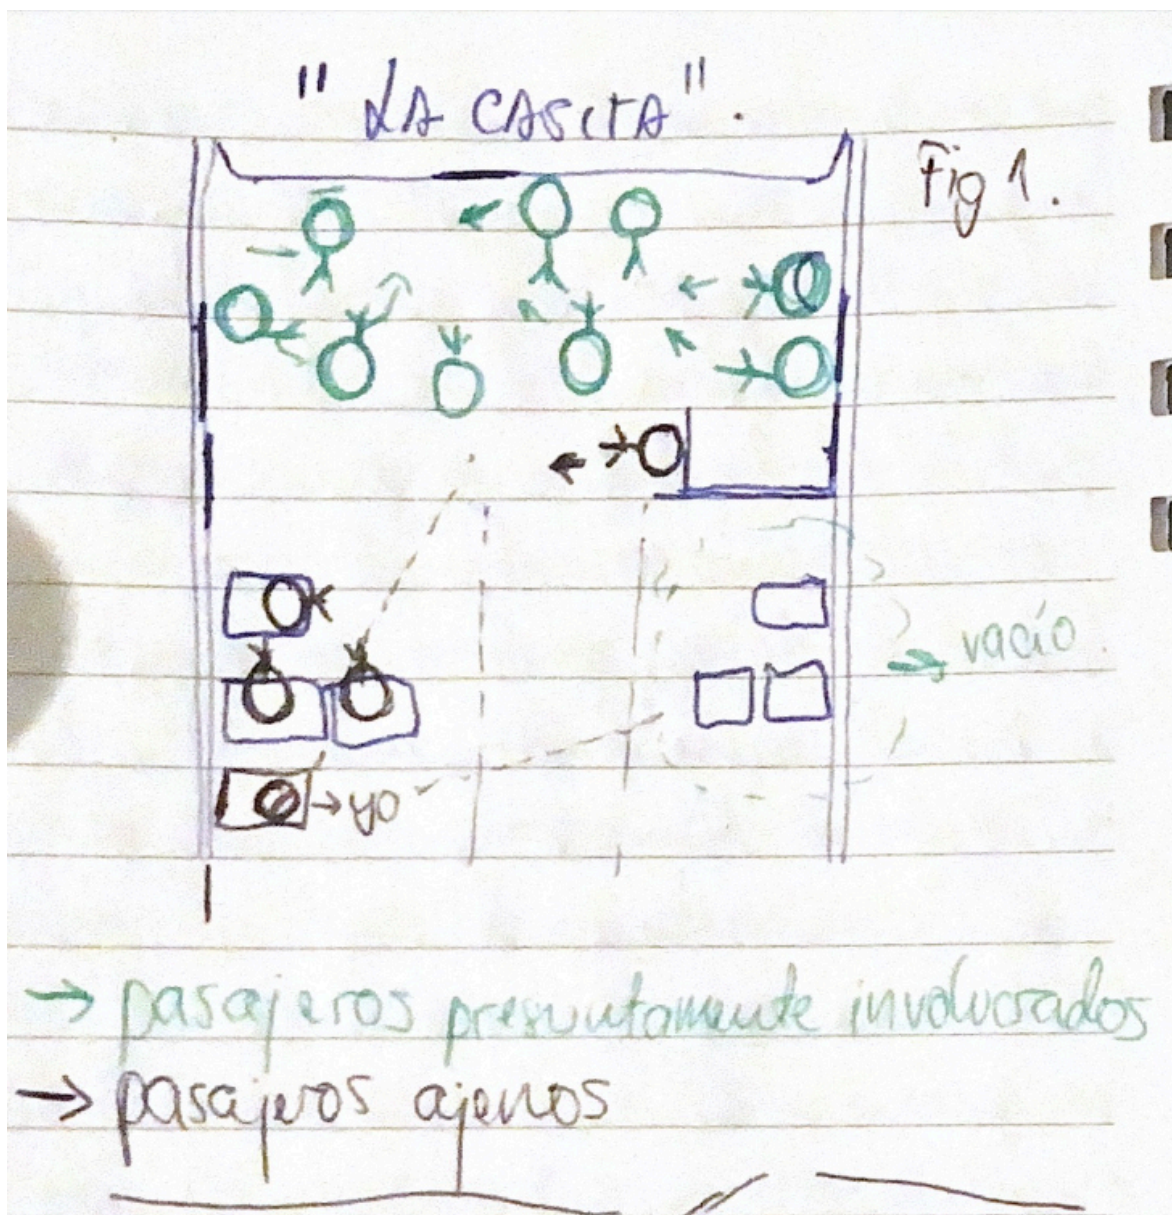 "LA CASITA".
Fig 1.
→ vacío.
→ yo
→ pasajeros presuntamente involucrados
→ pasajeros ajenos